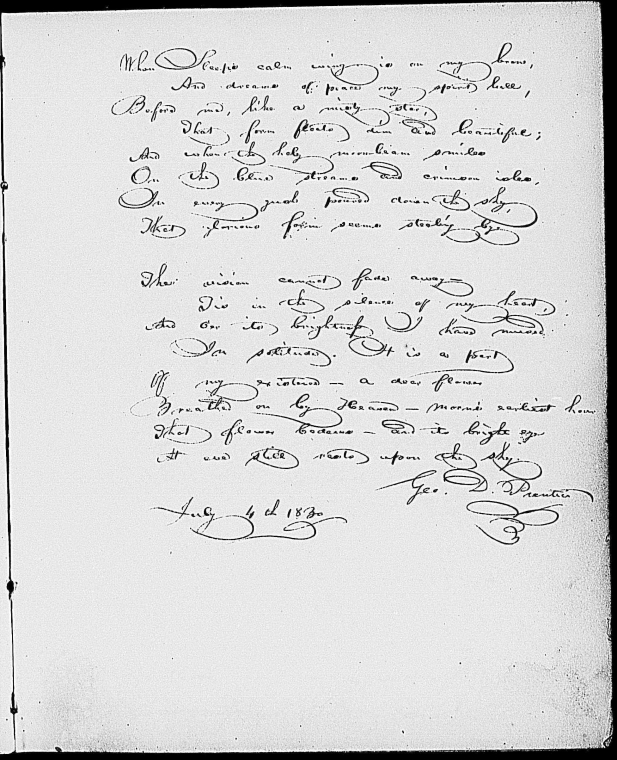 When Sleep's calm wing is on my brow,
And dreams of peace my spirit lull,
Before me, like a misty star,
That form floats dim and beautiful;
And when the holy moonbeam smiles
On the blue streams and crimson isles,
In every gush poured down the sky,
That glorious form seems stealing by.
The vision cannot fade away—
'Tis in the silence of my heart,
And o'er its brightness I have mused
In solitude. It is a part
Of my existence — a dear flower
Breathed on by Heaven — morn's earliest hour
That flower bedews — and its bright eye
At eve still rests upon the sky.
Geo. D. Prentice
July 4th 1830